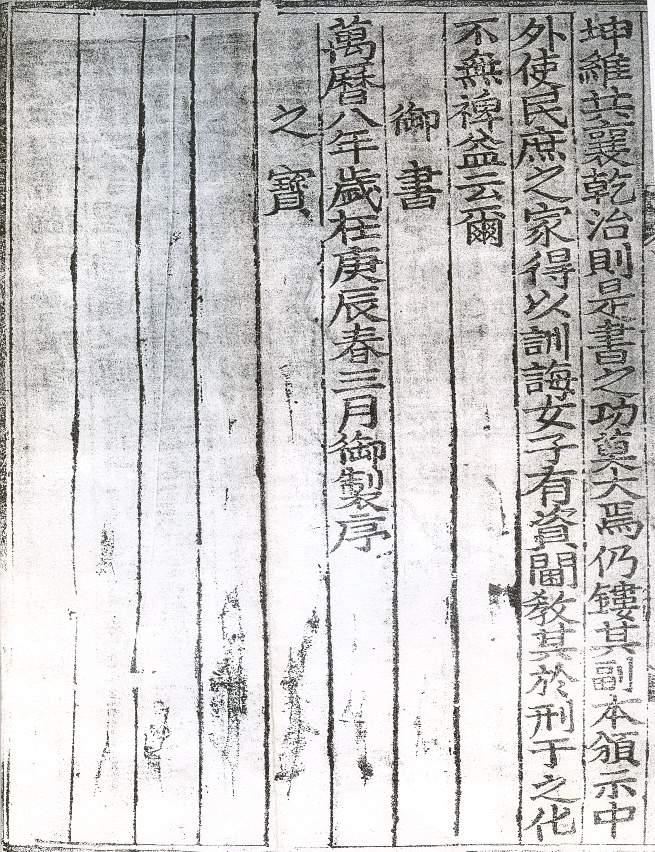 坤維共襄乾治則是書之功莫大焉仍鏤其副本頒示中
外使民庶之家得以訓誨女子有資閫教其於刑于之化
不無裨益云爾
御書
萬曆八年歲在庚辰春三月御製序
之寶